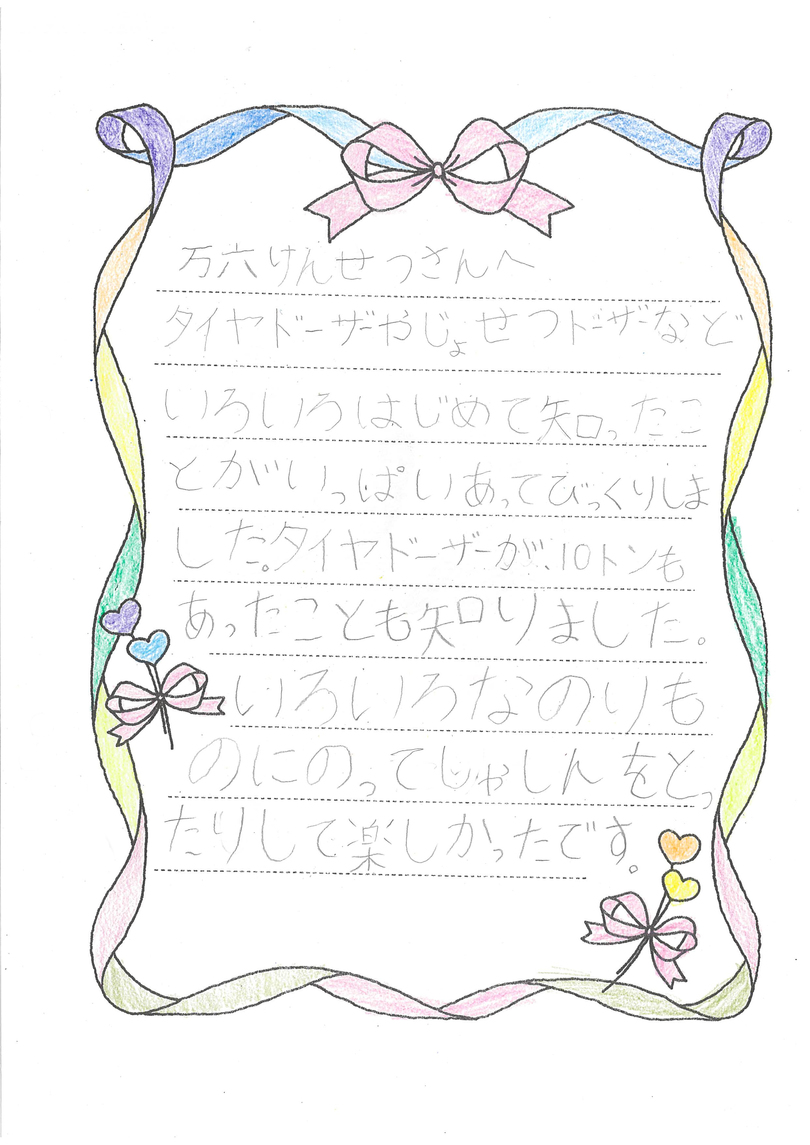 万六けんせつさんへ
タイヤドーザーやじょせつドーザーなど
いろいろはじめて知ったこ
とがいっぱいあってびっくりしま
した。タイヤドーザーが、10トンも
あったことも知りました。
いろいろなのりも
のにのってしゃしんをとっ
たりして楽しかったです。